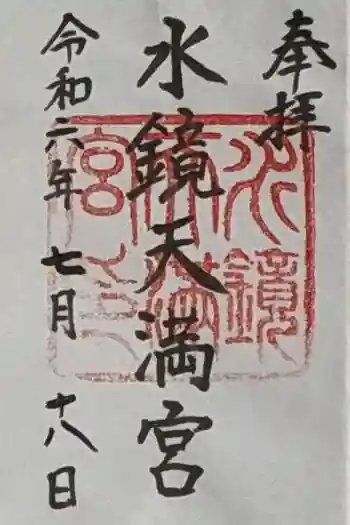 奉拝
水鏡天満宮
令和六年七月十八日
水鏡
天満
宮